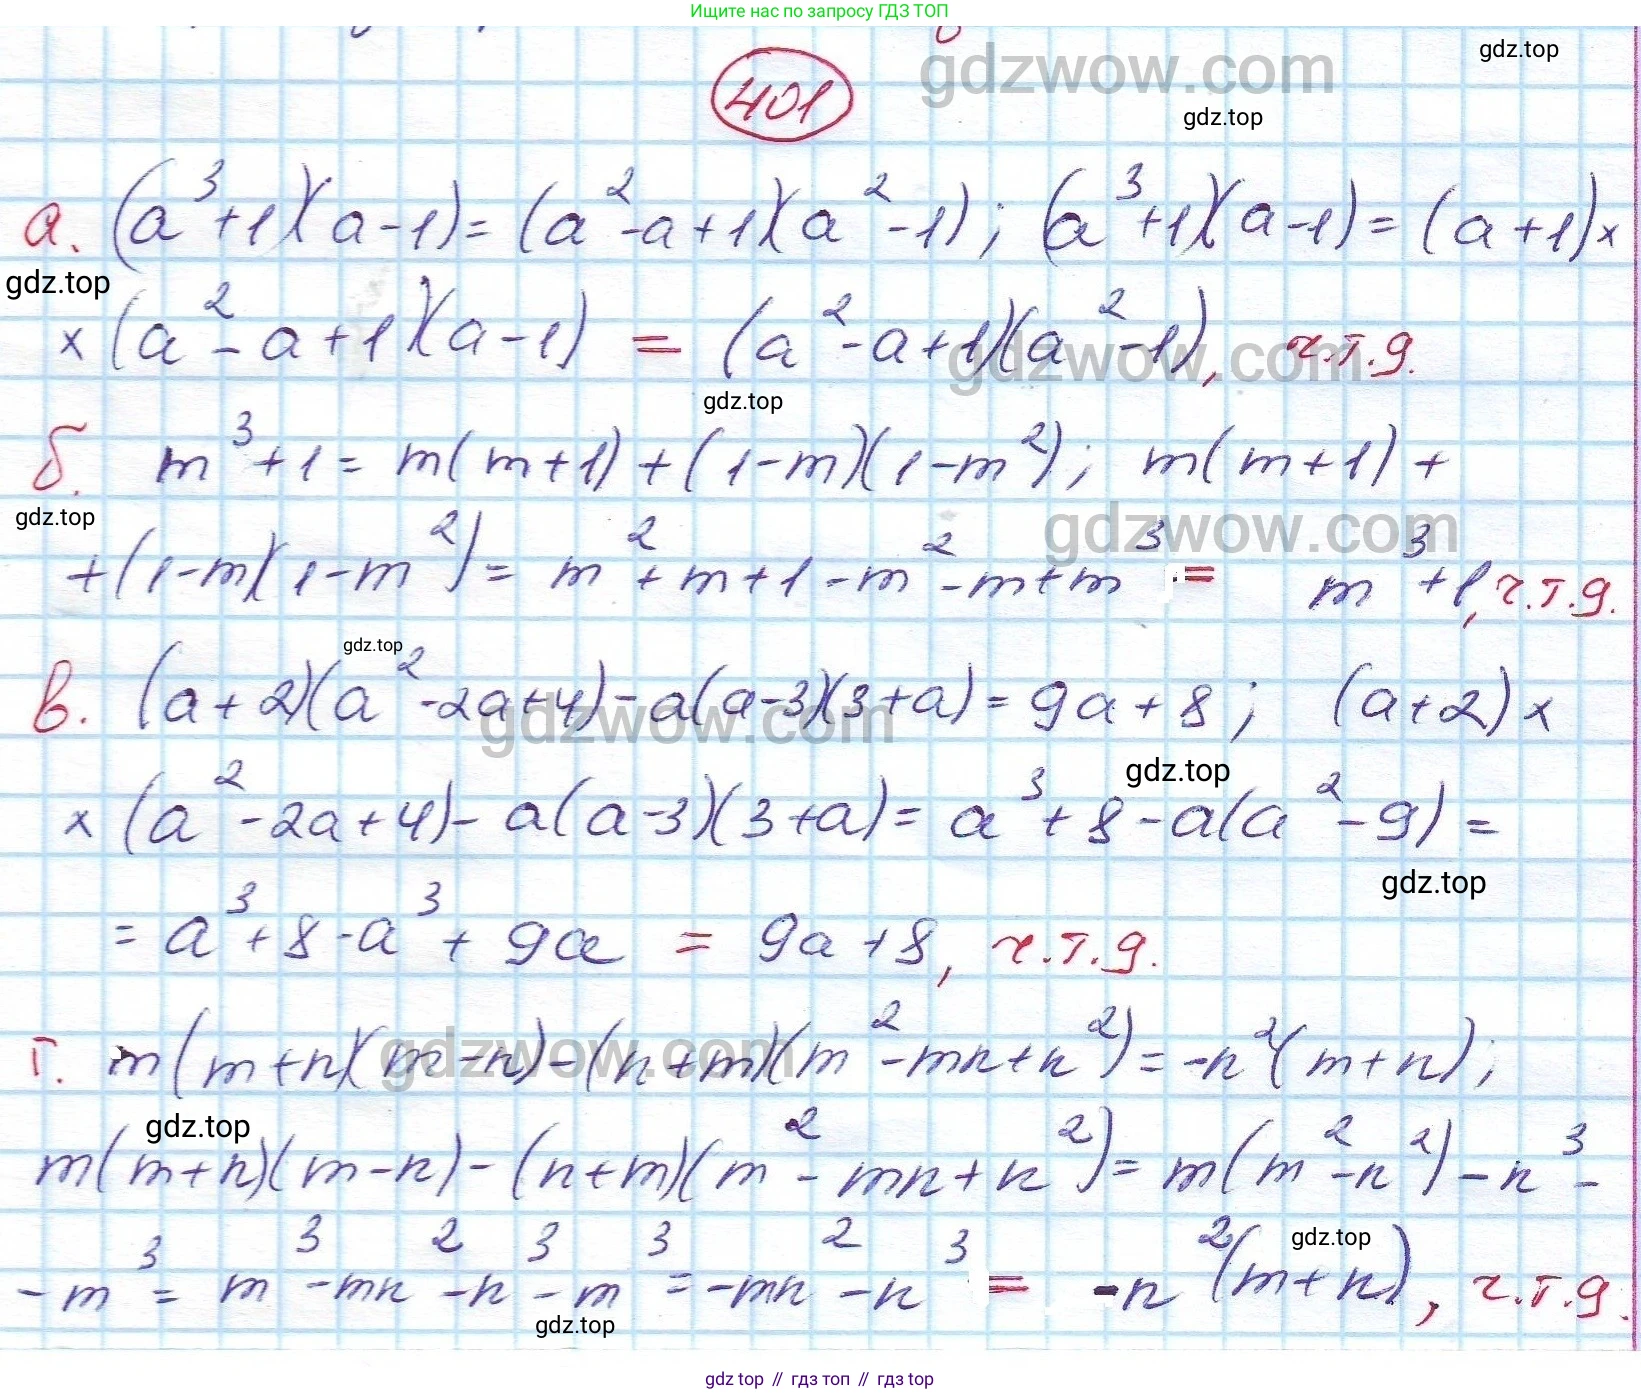 Ищите нас по запросу ГДЗ ТОП
gdz.top
gdzwow.com
401
gdz.top
а. (a³+1)(a-1)=(a²-a+1)(a²-1); (a³+1)(a-1)=(a+1)×
gdz.top
×(a²-a+1)(a-1) = (a²-a+1)(a²-1), ч.т.д.
gdzwow.com
gdz.top
б. m³+1=m(m+1)+(1-m)(1-m²); m(m+1)+
gdz.top
gdzwow.com
+(1-m)(1-m²)= m²+m+1-m²-m+m³ = m³+1, ч.т.д.
gdz.top
в. (a+2)(a²-2a+4)-a(a-3)(3+a)=9a+8; (a+2)×
gdzwow.com
gdz.top
×(a²-2a+4)-a(a-3)(3+a)=a³+8-a(a²-9)=
gdz.top
=a³+8-a³+9a = 9a+8, ч.т.д.
г. m(m+n)(m-n)-(n+m)(m²-mn+n²)=-n²(m+n);
gdzwow.com
gdz.top
m(m+n)(m-n)-(n+m)(m²-mn+n²)=m(m²-n²)-n³-
-m³= m³-mn²-n³-m³=-mn²-n³ = -n²(m+n), ч.т.д.
gdz.top
gdz.top
gdz.top // гдз топ // gdz top